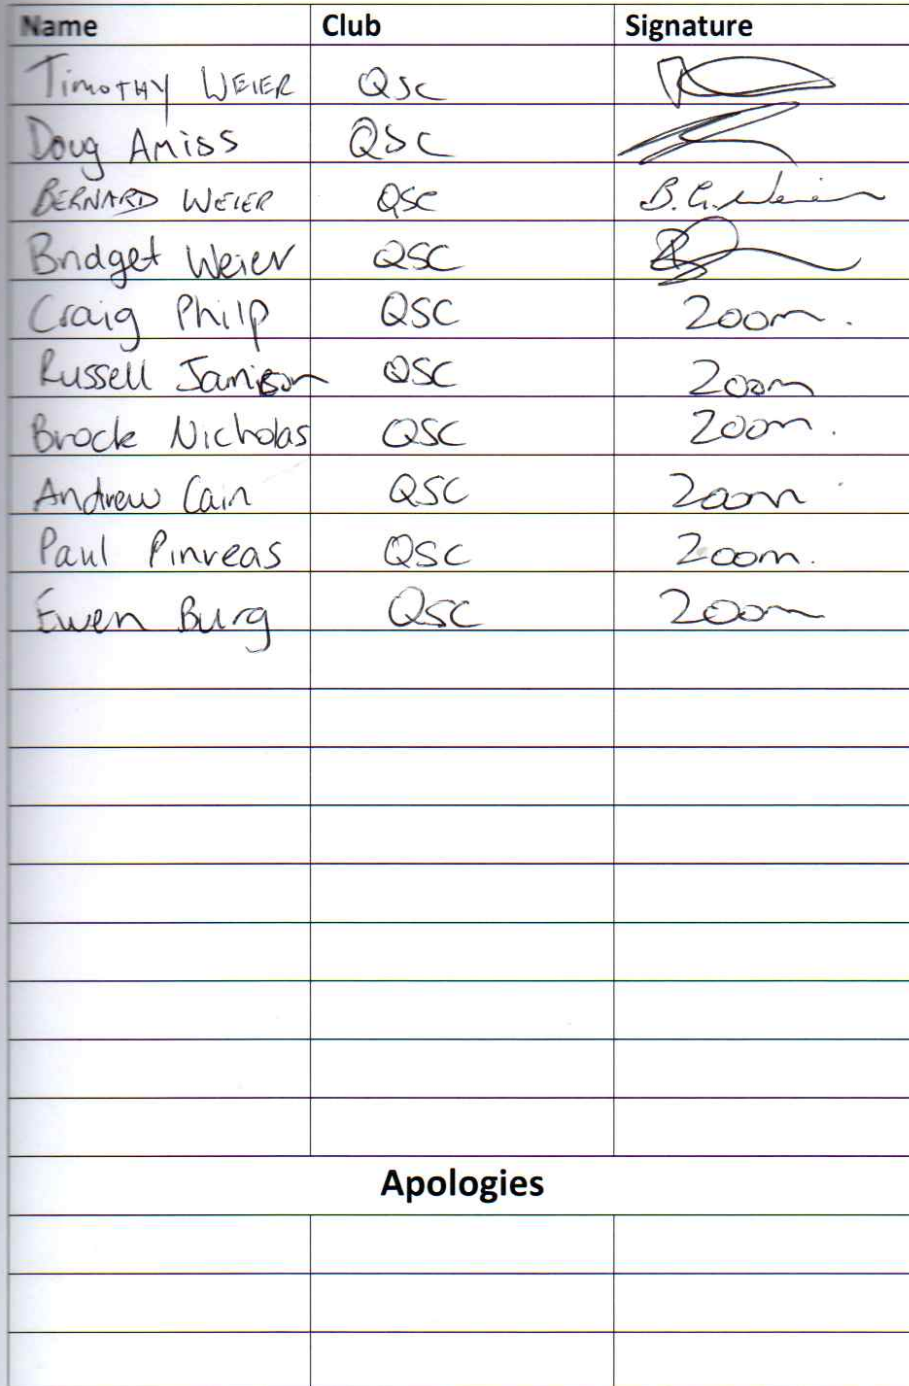 Name Club Signature
Timothy WEIER QSC
Doug Amiss QSC
BERNARD WEIER QSC B.G. Weier
Bridget Weier QSC
Craig Philp QSC Zoom.
Russell Jamison QSC Zoom
Brock Nicholas QSC Zoom.
Andrew Cain QSC Zoom
Paul Pinreas QSC Zoom.
Ewen Burg QSC Zoom
Apologies